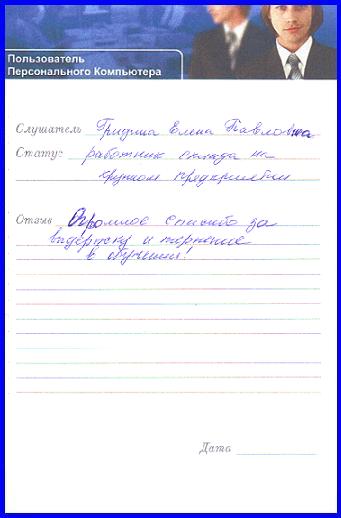 Пользователь
Персонального Компьютера
Слушатель Гридина Елена Павловна
Статус работник склада на
крупном предприятии
Отзыв Огромное спасибо за
выдержку и терпение
в обучении!
Дата